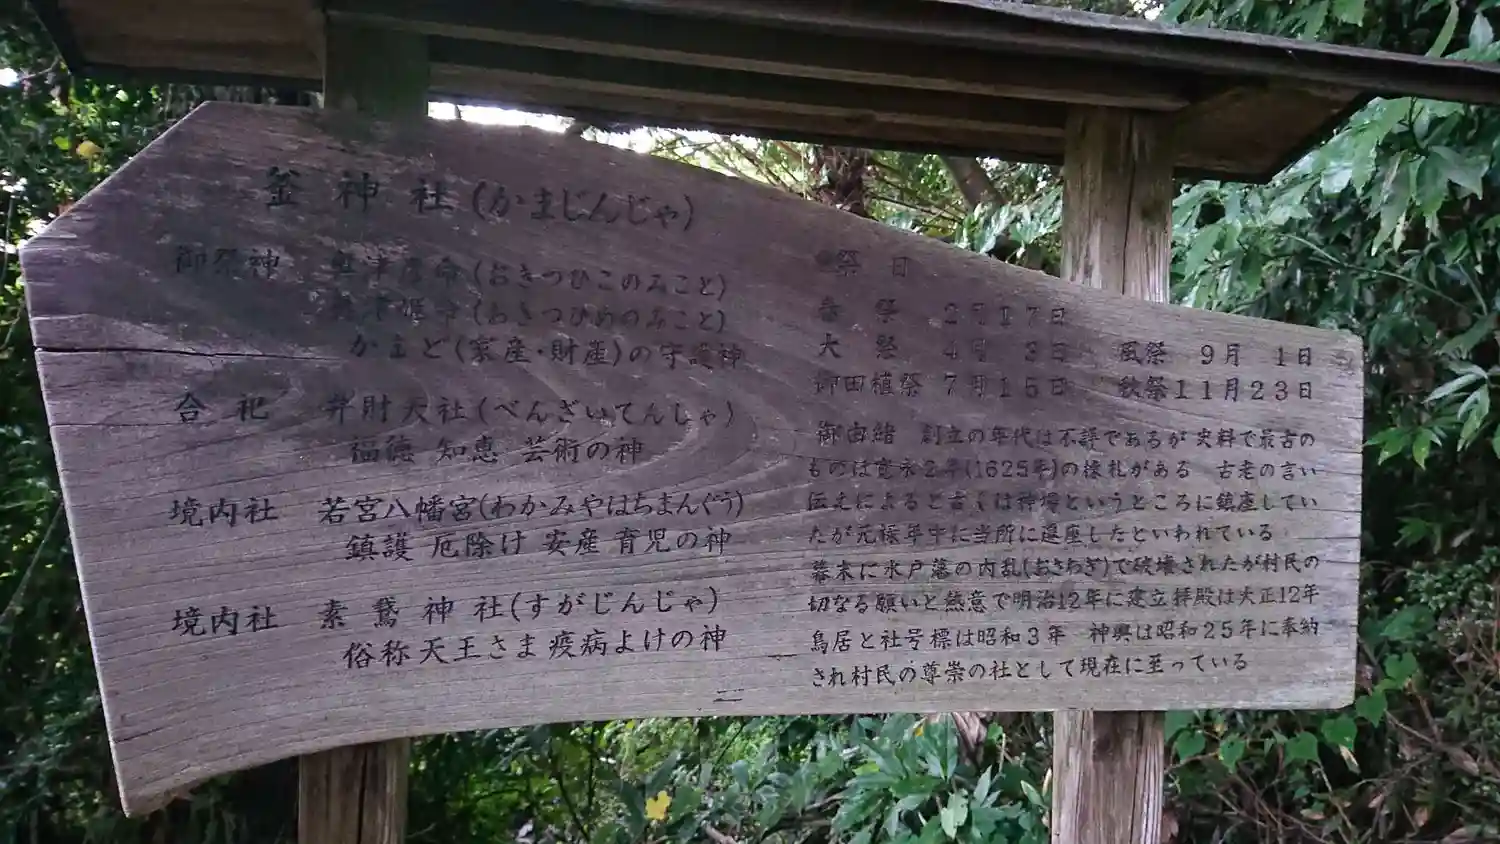 釜神社(かまじんじゃ)
御祭神 奥津彦命(おきつひこのみこと)
奥津姫命(おきつひめのみこと)
かまど(家産・財産)の守護神
合祀 弁財天社(べんざいてんしゃ)
福徳 知恵 芸術の神
境内社 若宮八幡宮(わかみやはちまんぐう)
鎮護 厄除け 安産 育児の神
境内社 素鵞神社(すがじんじゃ)
俗称天王さま疫病よけの神
祭日
春祭 2月17日
大祭 4月 3日 風祭 9月 1日
御田植祭 7月15日 秋祭11月23日
御由緒 創立の年代は不詳であるが史料で最古の
ものは寛永2年(1625年)の棟札がある 古老の言い
伝えによると古くは というところに鎮座してい
たが元禄年中に当所に遷座したといわれている
幕末に水戸藩の内乱(おさわぎ)で破壊されたが村民の
切なる願いと熱意で明治12年に建立拝殿は大正12年
鳥居と社号標は昭和3年 神輿は昭和25年に奉納
され村民の尊崇の社として現在に至っている